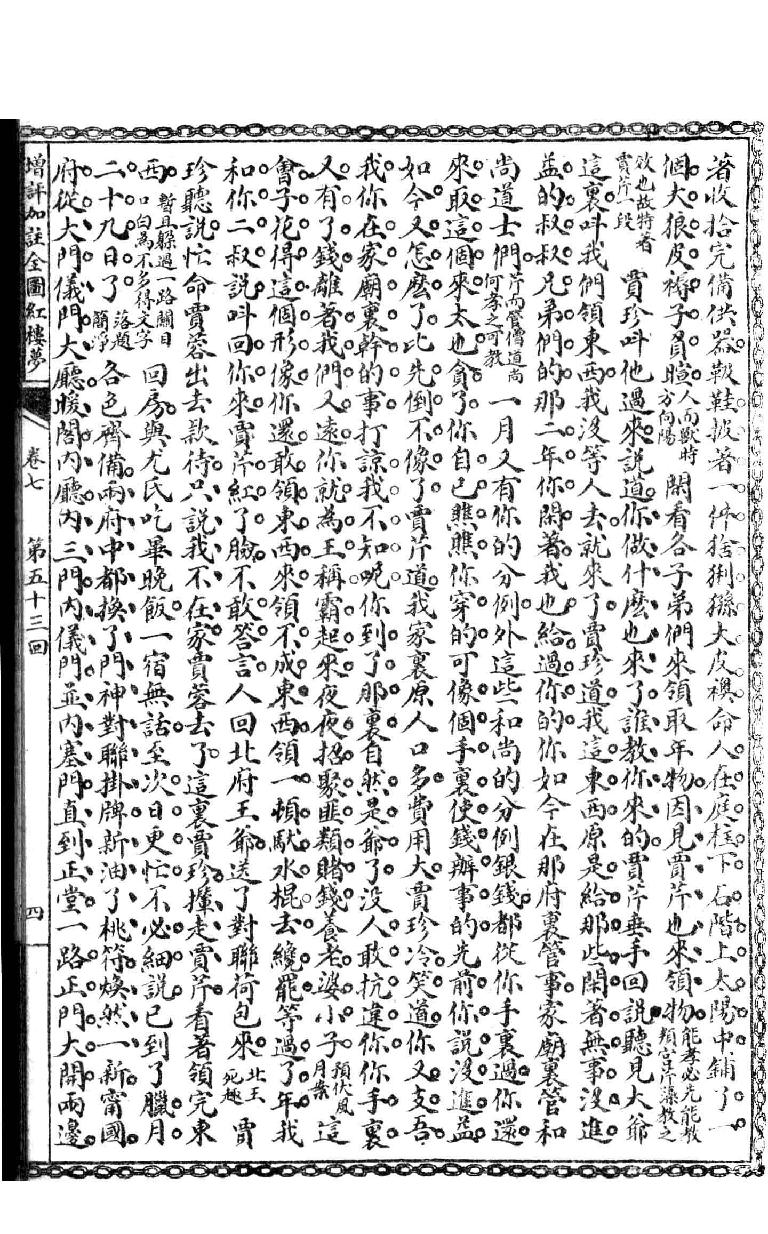 著收拾完備供器靸鞋披著一件猞猁猻大皮襖命人在庭柱下石階上太陽中鋪了一
個大狼皮褥子負暄人向獸時方向陽閑看各子弟們來領取年物因見賈芹也來領物能孝必先能教類言芹藻教之
故也故特著賈芹一段賈珍呌他過來說道你做什麼也來了誰教你來的賈芹垂手回說聽見大爺
這裏呌我們領東西我沒等人去就來了賈珍道我這東西原是給那些閑著無事沒進
益的叔叔兄弟們的那二年你閑著我也給過你的你如今在那府裏管事家廟裏管和
尚道士們芹而管僧道尚何孝之可教一月又有你的分例外這些和尚的分例銀錢都從你手裏過你還
來取這個來太也貪了你自己瞧瞧你穿的可像個手裏使錢辦事的先前你說沒進益
如今又怎麼了比先倒不像了賈芹道我家裏原人口多費用大賈珍冷笑道你又支吾
我你在家廟裏幹的事打諒我不知呢你到了那裏自然是爺了沒人敢抗違你你手裏
又有了錢離著我們又遠你就為王稱霸起來夜夜招聚匪類賭錢養老婆小子預伏風月案這
會子花得這個形像你還敢領東西來領不成東西領一頓馱水棍去纔罷等過了年我
和你二叔說呌回你來賈芹紅了臉不敢答言人回北府王爺送了對聯荷包來北王死趣賈
珍聽說忙命賈蓉出去款待只說我不在家賈蓉去了這裏賈珍攆走賈芹看著領完東
西暫且躲過一路關目口白為不多得文字回房與尤氏吃畢晚飯一宿無話至次日更忙不必細說已到了臘月
二十九日了落題簡淨各色齊備兩府中都換了門神對聯掛牌新油了桃符煥然一新甯國
府從大門儀門大廳暖閣內廳內三門內儀門並內塞門直到正堂一路正門大開兩邊
增評加註全圖紅樓夢
卷七
第五十三回
四